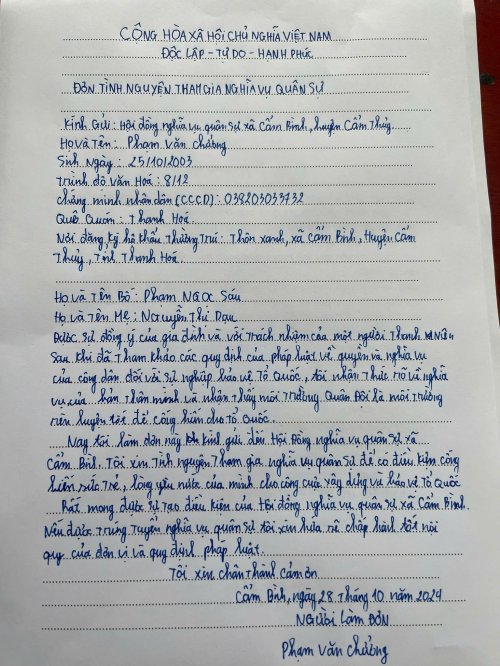 CỘNG HÒA XÃ HỘI CHỦ NGHĨA VIỆT NAM
ĐỘC LẬP - TỰ DO - HẠNH PHÚC
ĐƠN TÌNH NGUYỆN THAM GIA NGHĨA VỤ QUÂN SỰ
Kính Gửi: Hội đồng nghĩa vụ quân sự xã Cẩm Bình, huyện Cẩm Thủy
Họ và Tên: Phạm Văn Chưởng
Sinh Ngày: 25/10/2003
Trình độ Văn Hoá: 8/12
Chứng minh nhân dân (CCCD): 038203033732
Quê Quán: Thanh Hoá
Nơi đăng ký hộ khẩu Thường Trú: Thôn xanh, xã Cẩm Bình, Huyện Cẩm
Thủy, Tỉnh Thanh Hoá
Họ và Tên Bố: Phạm Ngọc Sáu
Họ và Tên Mẹ: Nguyễn Thị Dậu
Được sự đồng ý của gia đình và với trách nhiệm của một người Thanh Niên
Sau khi đã Tham khảo các quy định của pháp luật về quyền và nghĩa vụ
của công dân đối với sự nghiệp bảo vệ Tổ Quốc, tôi nhận Thức rõ về nghĩa
vụ của bản Thân mình và nhận Thấy môi Trường Quân Đội là môi Trường
rèn luyện tốt để cống hiến cho Tổ Quốc.
Nay tôi làm đơn này kính gửi đến Hội Đồng nghĩa vụ quân sự xã
Cẩm Bình. Tôi xin Tình nguyện Tham gia nghĩa vụ quân sự để có điều kiện cống
hiến sức trẻ, lòng yêu nước của mình cho công cuộc xây dựng và bảo vệ Tổ Quốc
Rất mong được sự tạo điều kiện của Hội đồng nghĩa vụ quân sự xã Cẩm Bình
Nếu được trúng tuyển nghĩa vụ quân sự tôi xin hứa sẽ chấp hành tốt nội
quy của đơn vị và quy định pháp luật.
Tôi xin chân Thành cảm ơn
Cẩm Bình, ngày 28 Tháng 10 năm 2024
NGười Làm ĐƠN
Phạm Văn Chưởng